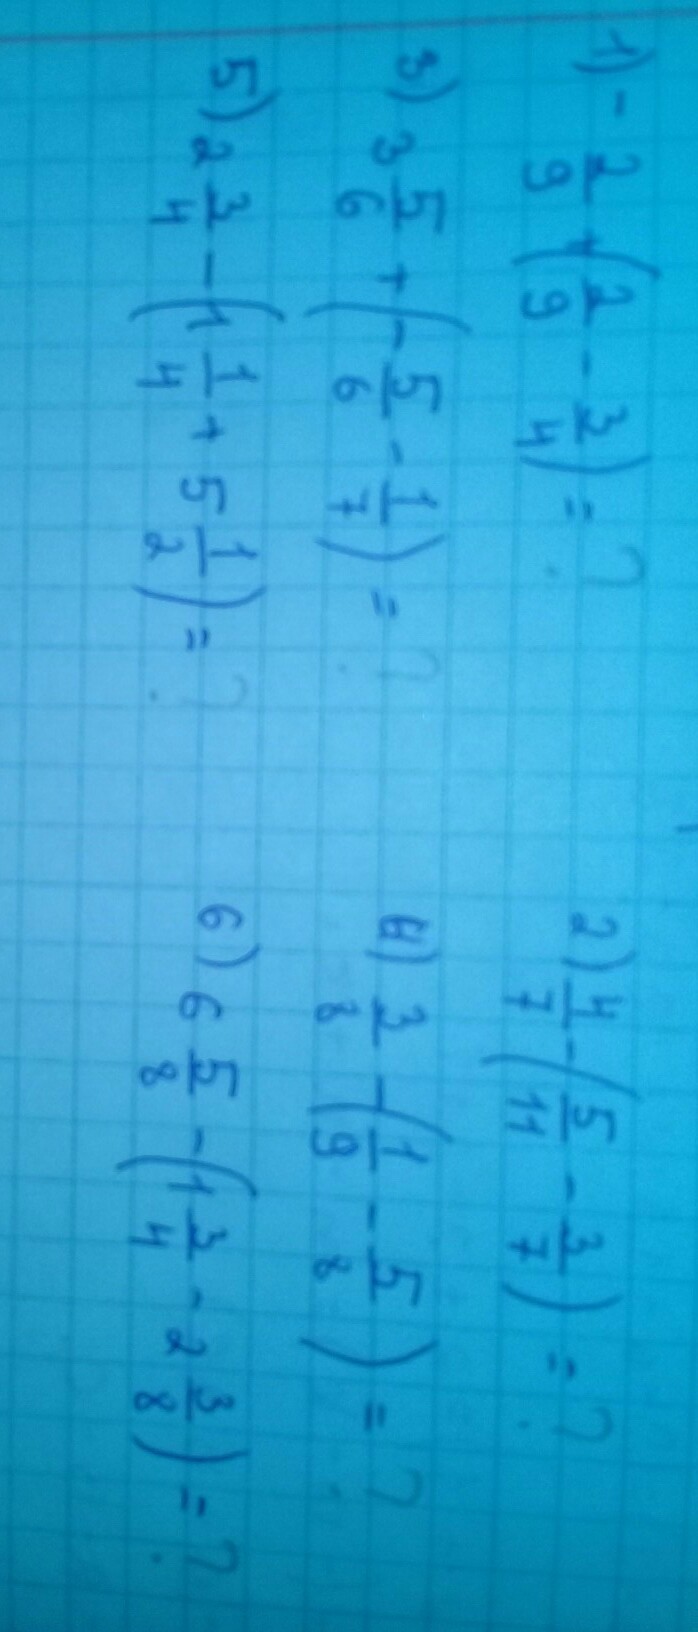 1) - 2/9 + (2/9 - 3/4) = ?
2) 4/7 - (5/11 - 3/7) = ?
3) 3 5/6 + (- 5/6 - 1/7) = ?
4) 3/8 - (1/9 - 5/8) = ?
5) 2 3/4 - (1 1/4 + 5 1/2) = ?
6) 6 5/8 - (1 3/4 - 2 3/8) = ?